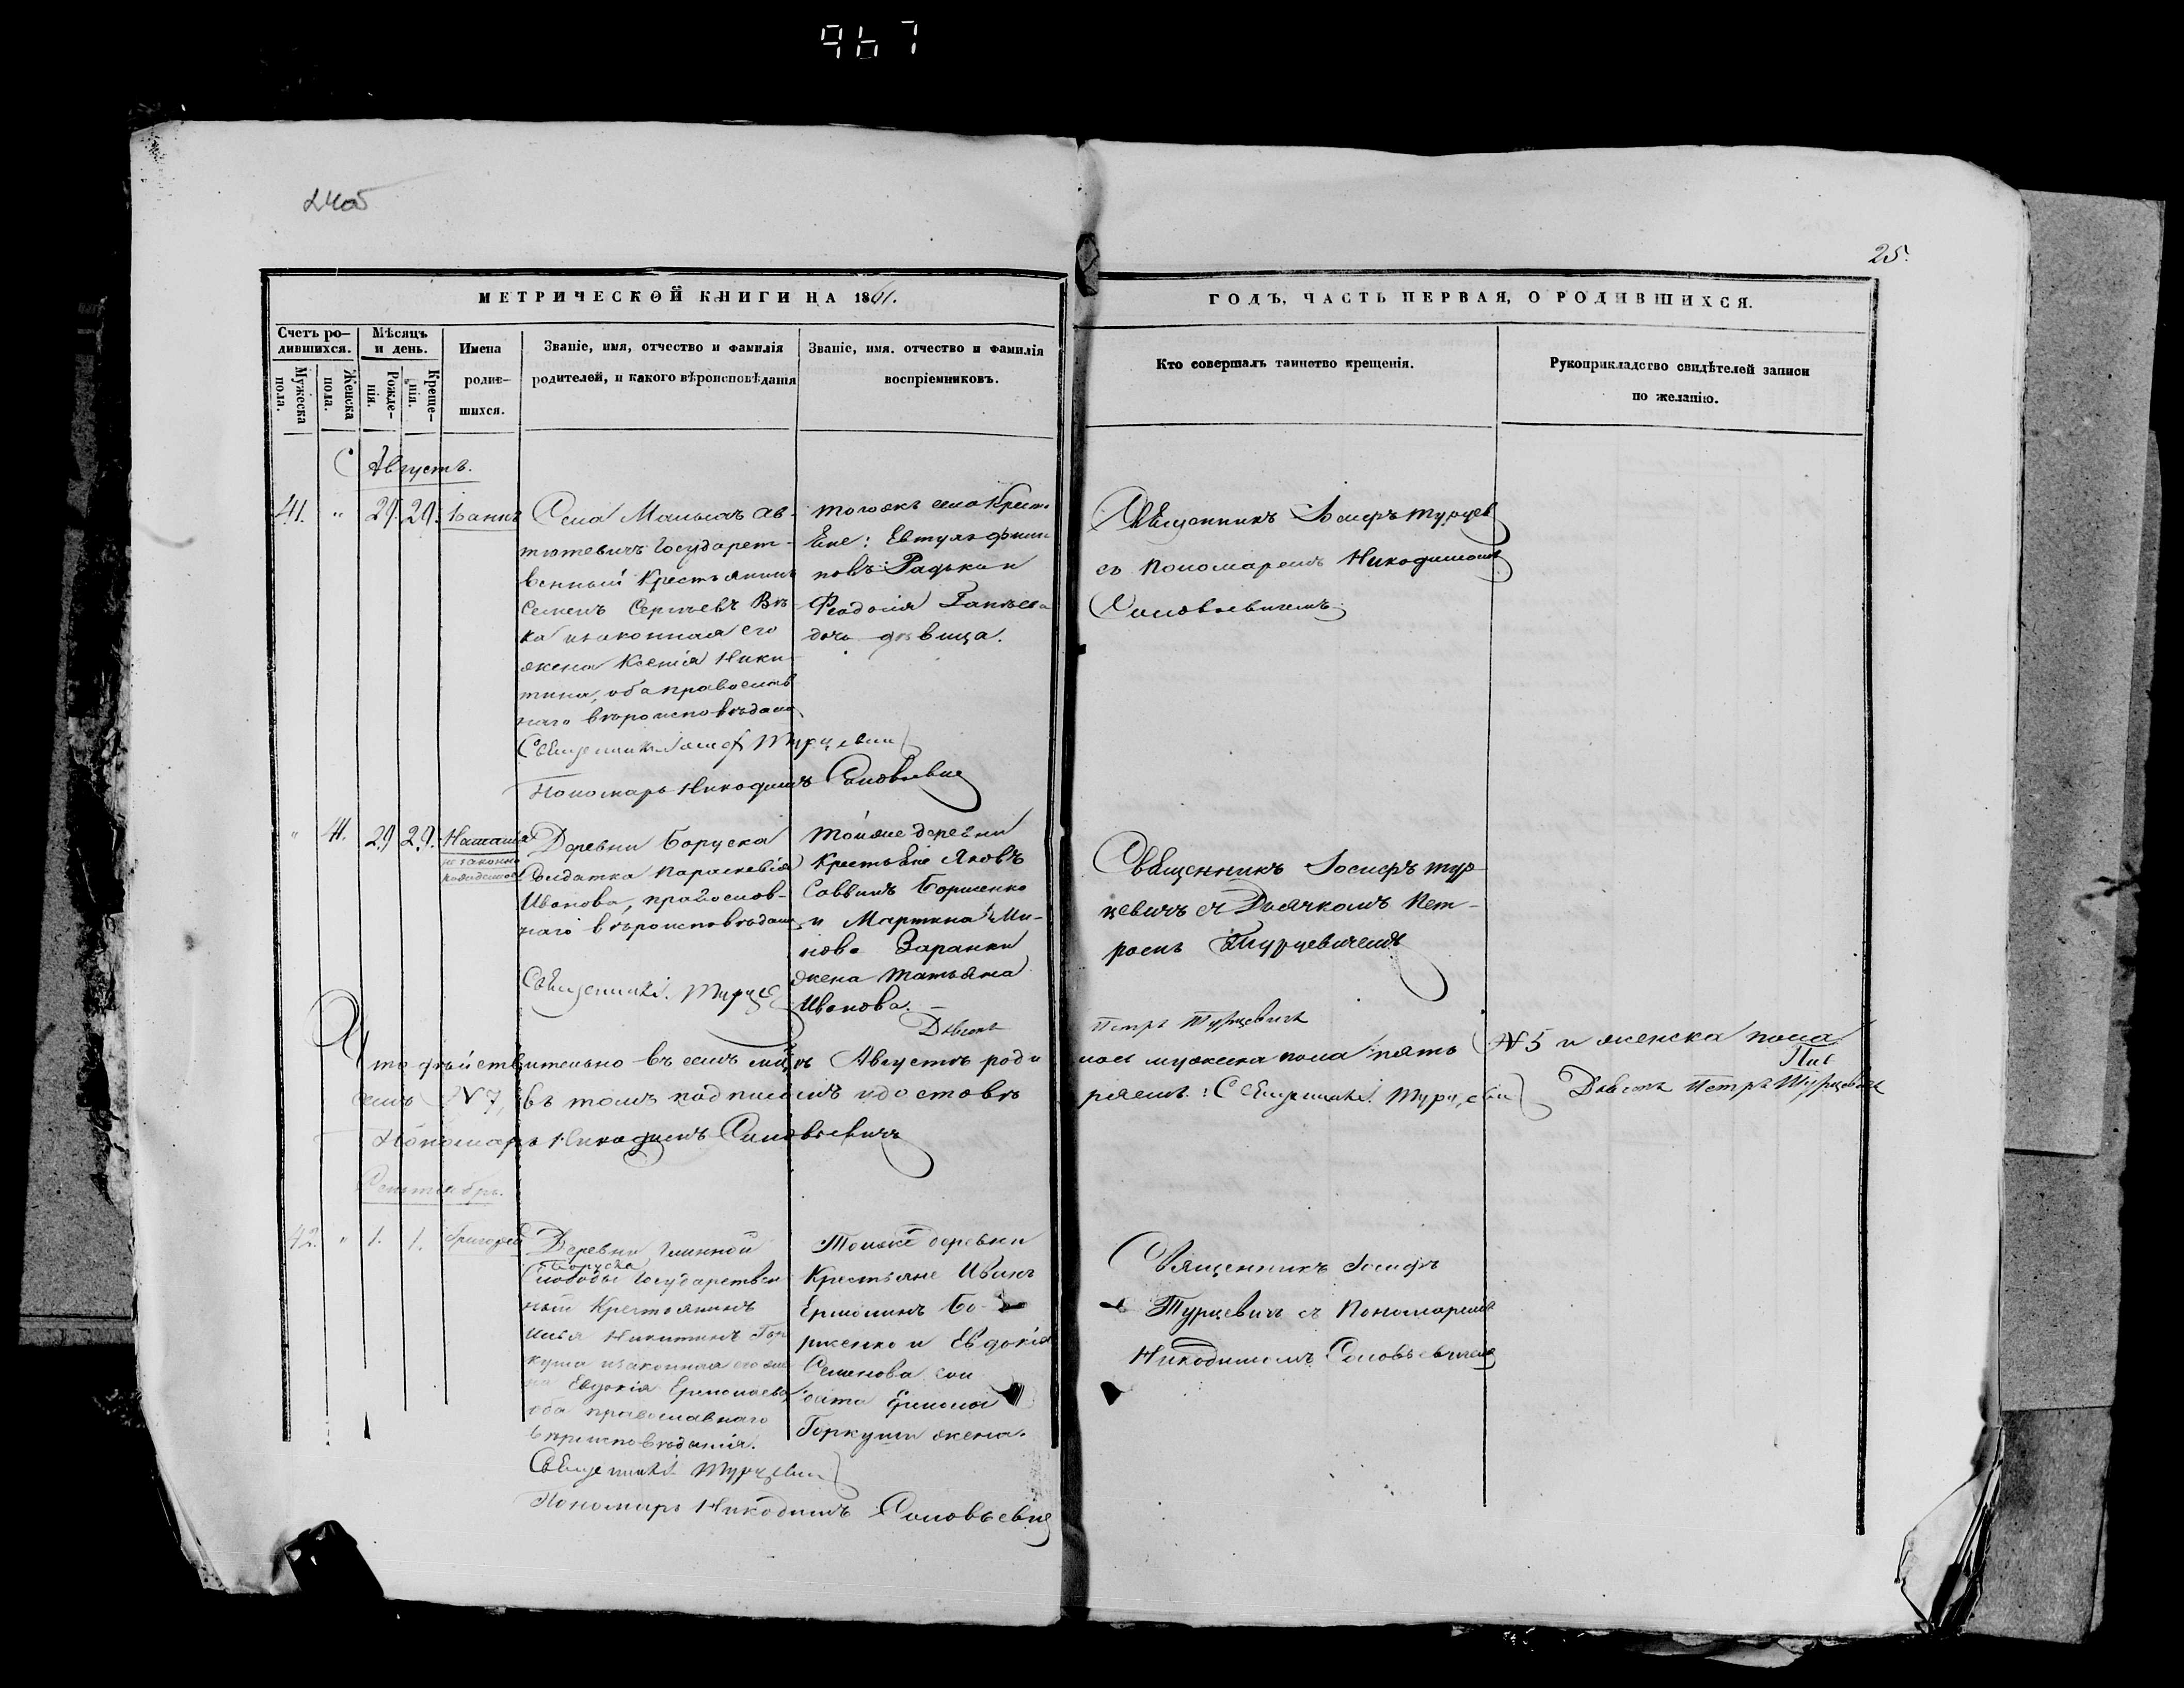 967
24об
25.
МЕТРИЧЕСКОЙ КНИГИ НА 1861.
ГОДЪ, ЧАСТЬ ПЕРВАЯ, О РОДИВШИХСЯ.
Счетъ ро-
дившихся.
Мѣсяцъ
и день.
Мужеска
пола.
Женска
пола.
Рожде-
нія.
Креще-
нія.
Имена
родив-
шихся.
Званіе, имя, отчество и фамилія
родителей, и какого вѣроисповѣданія
Званіе, имя. отчество и фамилія
воспріемниковъ.
Кто совершалъ таинство крещенія.
Рукоприкладство свидѣтелей записи
по желанію.
Августъ.
41. " 29. 29. Іоаннъ
Села Малыхъ Ав-
тютевичъ Государст-
венный Крестьянинъ
Семенъ Сергѣевъ
ка и законная его
жена Ксенія Ники-
тина, оба православ
наго вѣроисповѣданія
Священникъ Іосиф Турцевич
Пономарь Никодимъ Соловьевич
тогожъ села Кресть
яне: Евтухъ Филип
повъ Радькон
Феодосія
дочь девица.
Священникъ Іосифъ Турцев
съ Пономаремъ Никодимомъ
Соловьевичемъ
" 41. 29 29. Наталія
не законно
рожденная
Деревни Боруска
Солдатка Параскевія
Иванова, православ-
наго вѣроисповѣданія
Священникъ І. Турцев
Тойже деревни
Крестьяне Яковъ
Саввинъ Борисенко
и Мартина Ми-
нова Заранки
жена Татьяна
Иванова.
Священникъ Іосифъ Тур-
цевичъ съ Дьячкомъ Пет-
ромъ Турцевичемъ
Дьячокъ Петръ Турцевичъ
Что дѣйствительно въ семъ м-цѣ Августѣ роди
лось мужеска пола пять N 5 и женска пола
семь N 7, въ томъ подписомъ удостовѣ
ряемъ: Священникъ І. Турцевич Дьячокъ Петръ Турцевичъ
Пономарь Никодимъ Соловьевичъ
Сентябрь.
42. " 1. 1. Григорій
Деревни Глинной
Боруска
Слободы Государствен
ный Крестьянинъ
Илья Никитинъ Гор
куша и законная его же
на Евдокія Ермолаева,
оба православнаго
вѣроисповѣданія.
Священникъ І. Турцевич
Пономарь Никодимъ Соловьевич
Тойже деревни
Крестьяне Иванъ
Ермолинъ Бо-
рисенко и Евдокія
Семенова сол
дата Ермола
Горкуши жена.
Священникъ Іосифъ
Турцевичъ съ Пономаремъ
Никодимомъ Соловьевичемъ